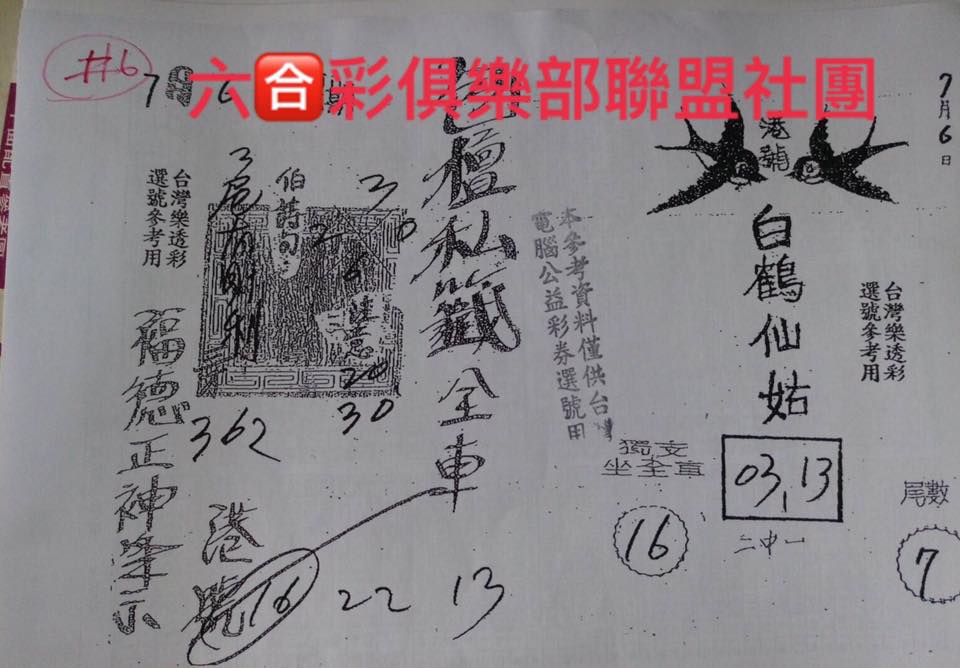 六合彩俱樂部聯盟社團
#6
7月6日
港號
白鶴仙姑
台灣樂透彩
選號參考用
獨支
坐全車
16
03,13
二中一
尾數
7
本參考資料僅供台灣
電腦公益彩券選號用
壇私籤全車
台灣樂透彩
選號參考用
伯詩句
3
20
30
362
福德正神
港號
16 22 13